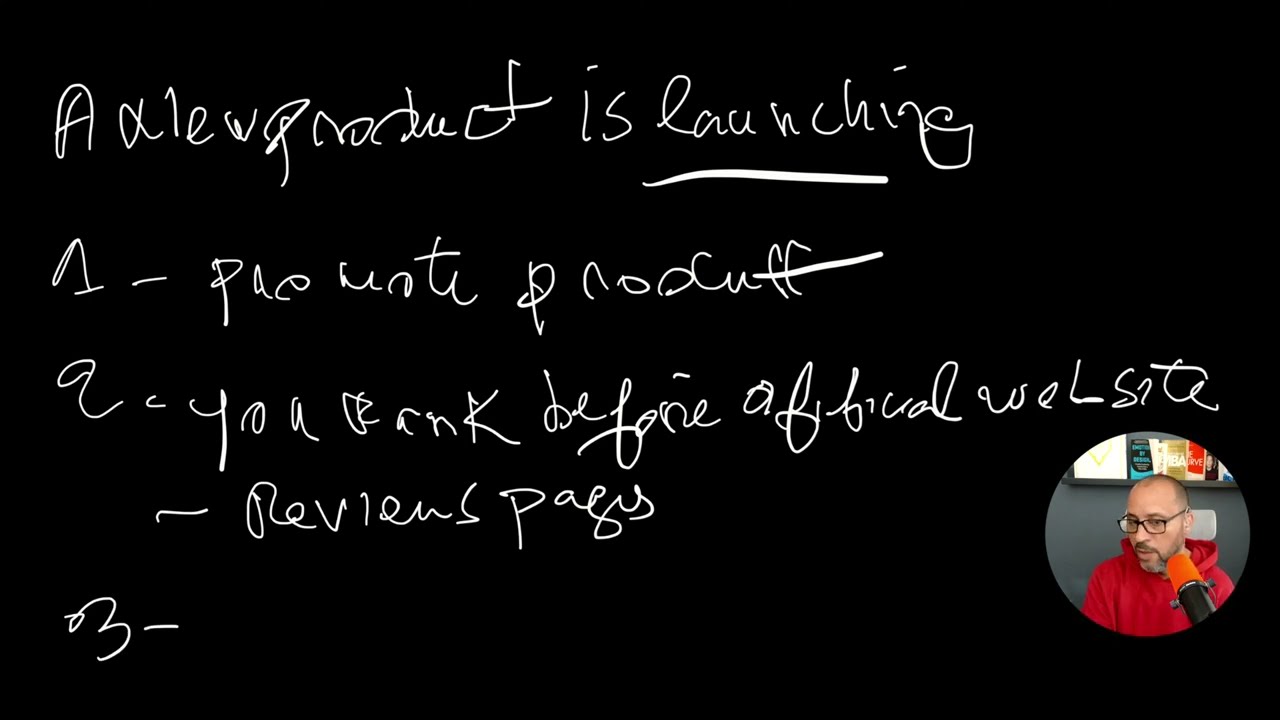 A New product is launching
1 - promote product
2 - you rank before official website
- Reviews pages
3 -
EMOTION
BY
DESIGN
MBA